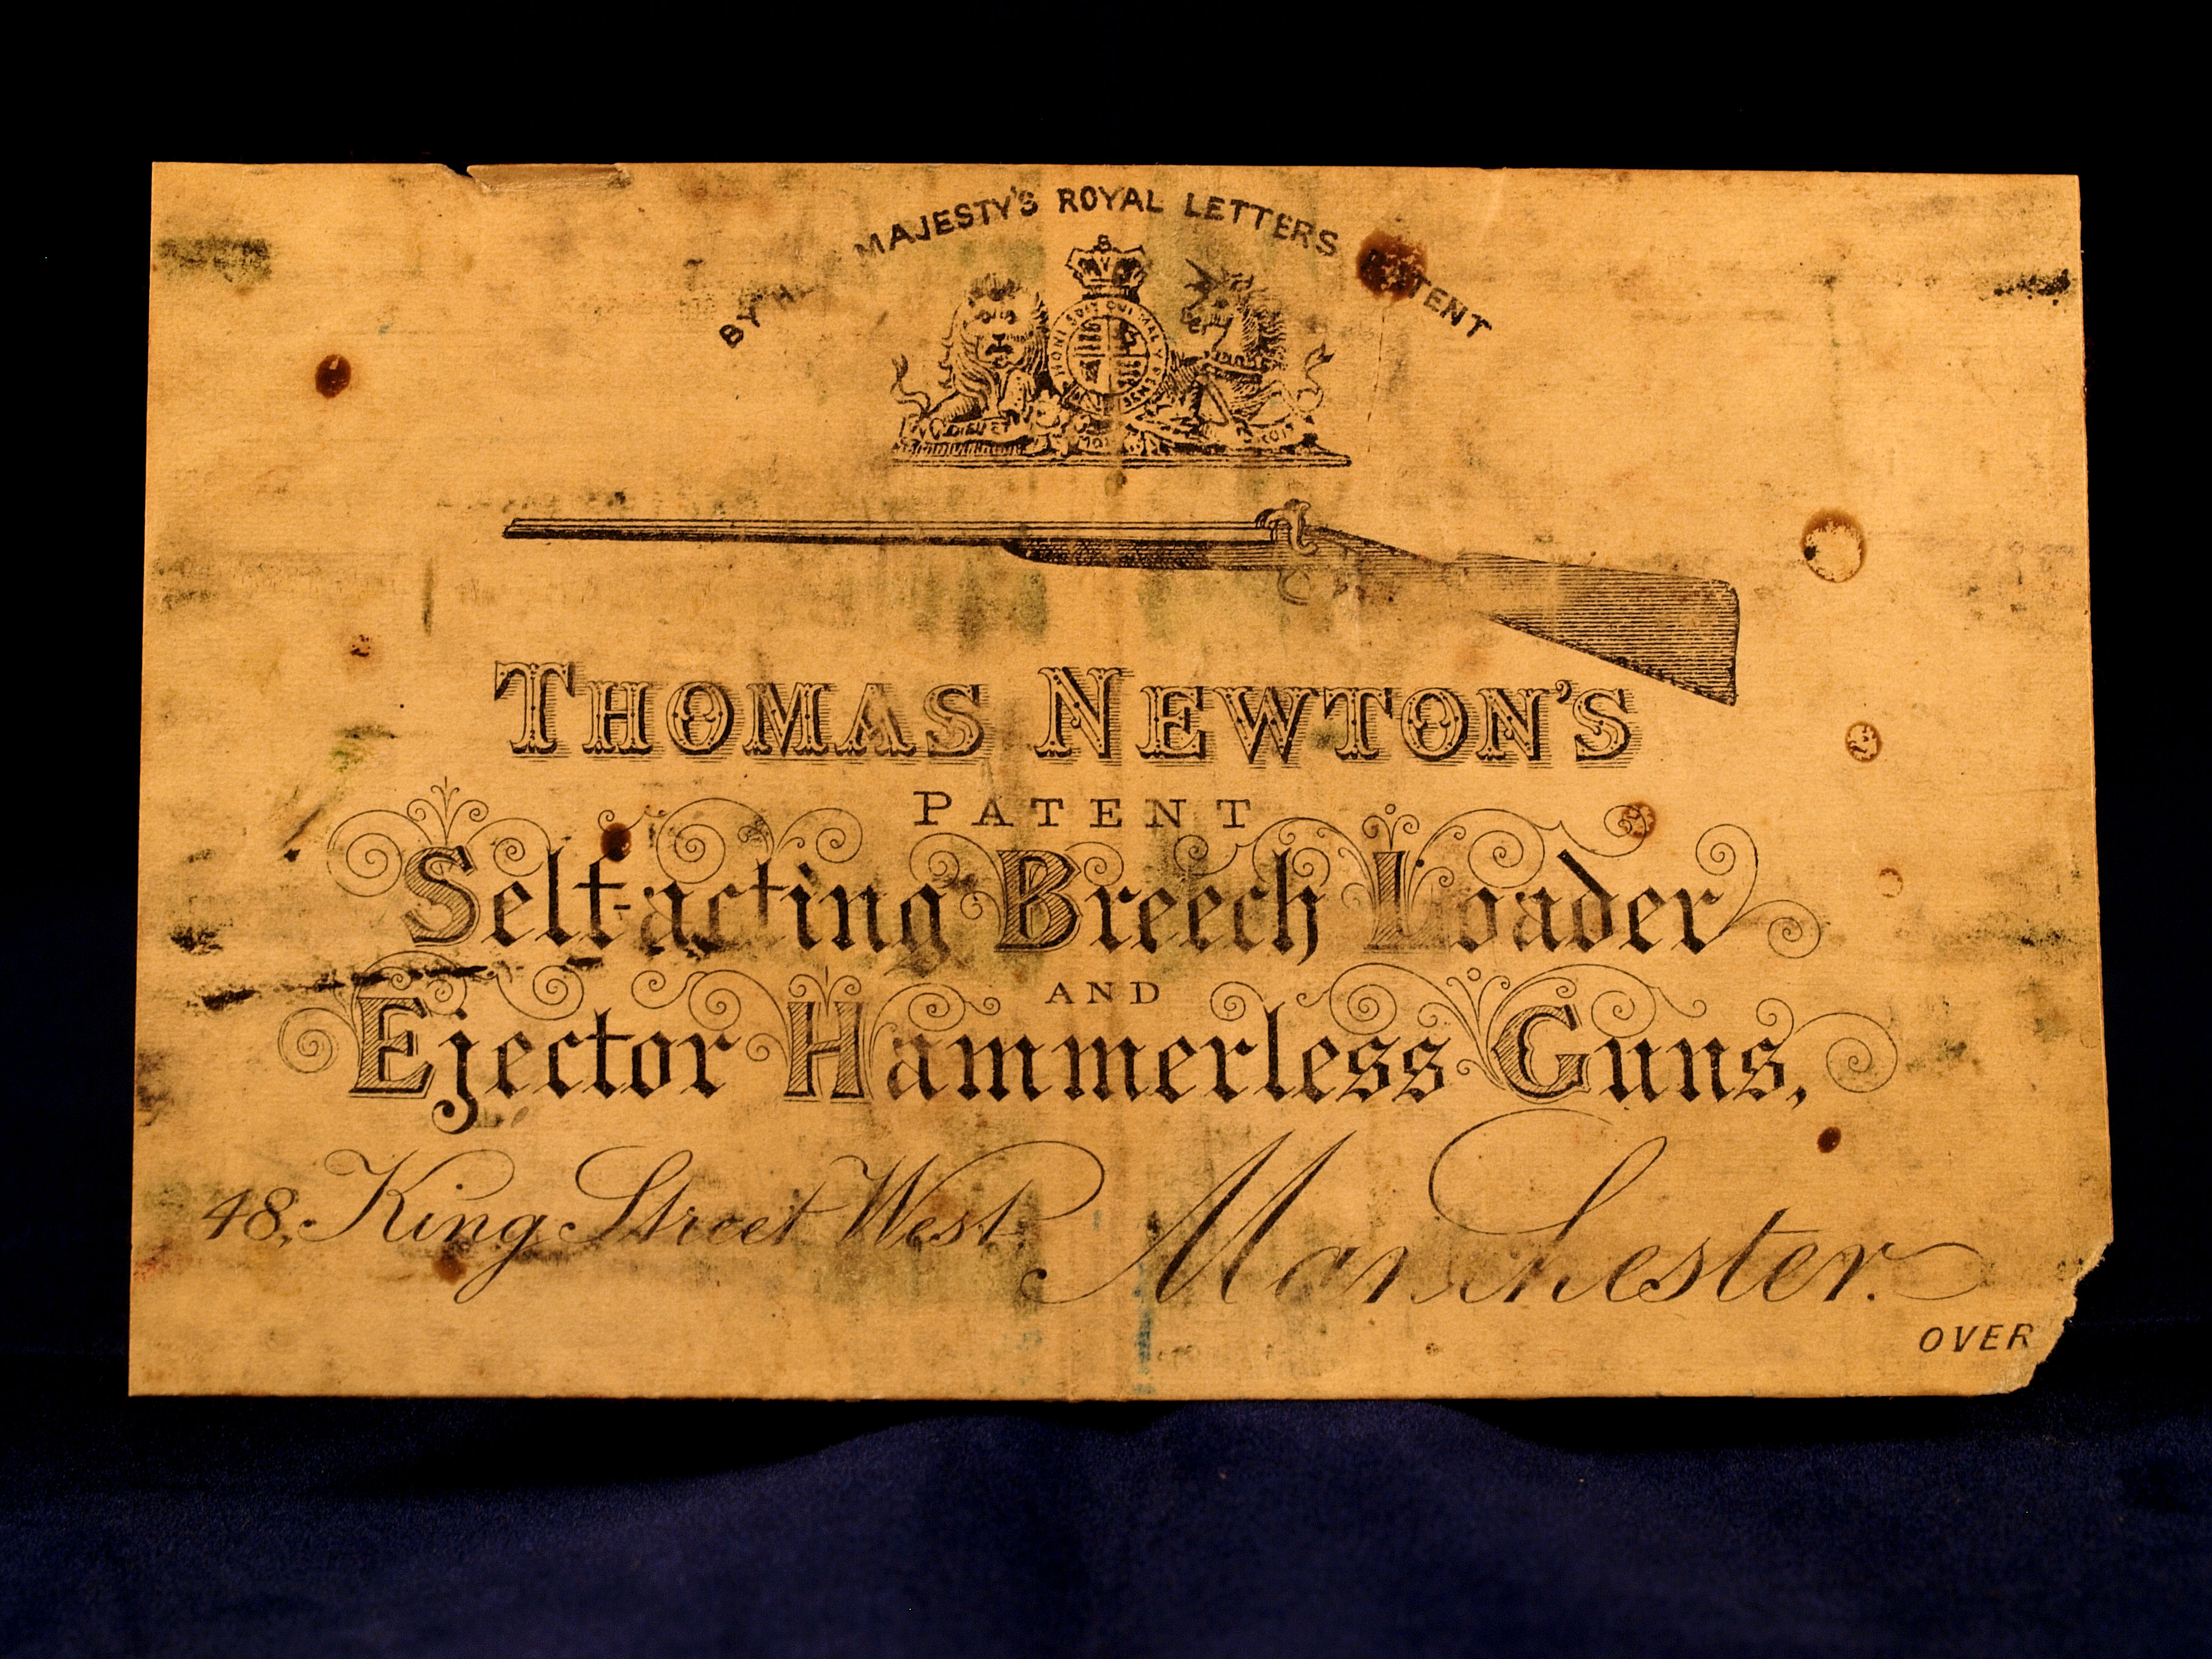 BY MAJESTY'S ROYAL LETTERS PATENT
HONI SOIT QUI MAL Y PENSE
DIEU ET MON DROIT
THOMAS NEWTON'S
PATENT
Self-acting Breech Loader
AND
Ejector Hammerless Guns,
48, King Street West, Manchester.
OVER